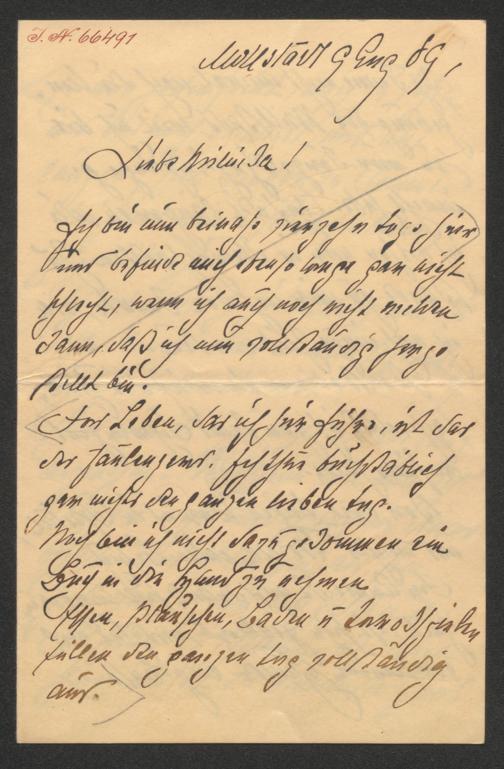 I. N. 66491
Millstatt 9 Aug 89,
Liebe
Ich bin nun beinahe vierzehn tage hier
und befinde mich lange gar nicht
schlecht, wenn ich auch noch nicht merken
kann, daß ich nun vollständig herge
stellt bin.
Das Leben, das ich hier führe, ist das
der Faulenzer. Ich thue buchstäblich
gar nichts den ganzen lieben tag.
Noch bin ich nicht dazu gekommen ein
Buch in die Hand zu nehmen
Essen, plauschen, Baden u Tarockspielen
füllen den ganzen tag vollständig
aus.